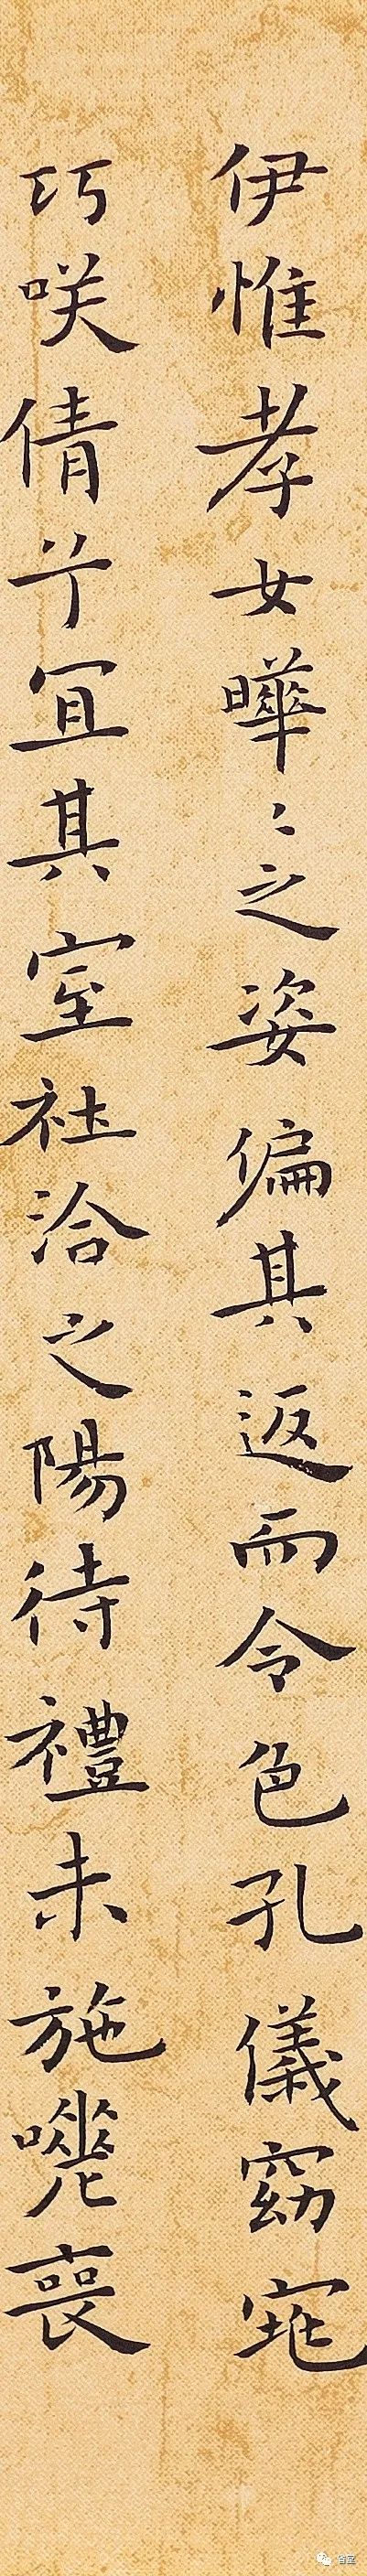 伊惟孝女曄〻之姿偏其返而令色孔儀窈窕
巧咲倩兮宜其室在洽之陽待禮未施嗟喪